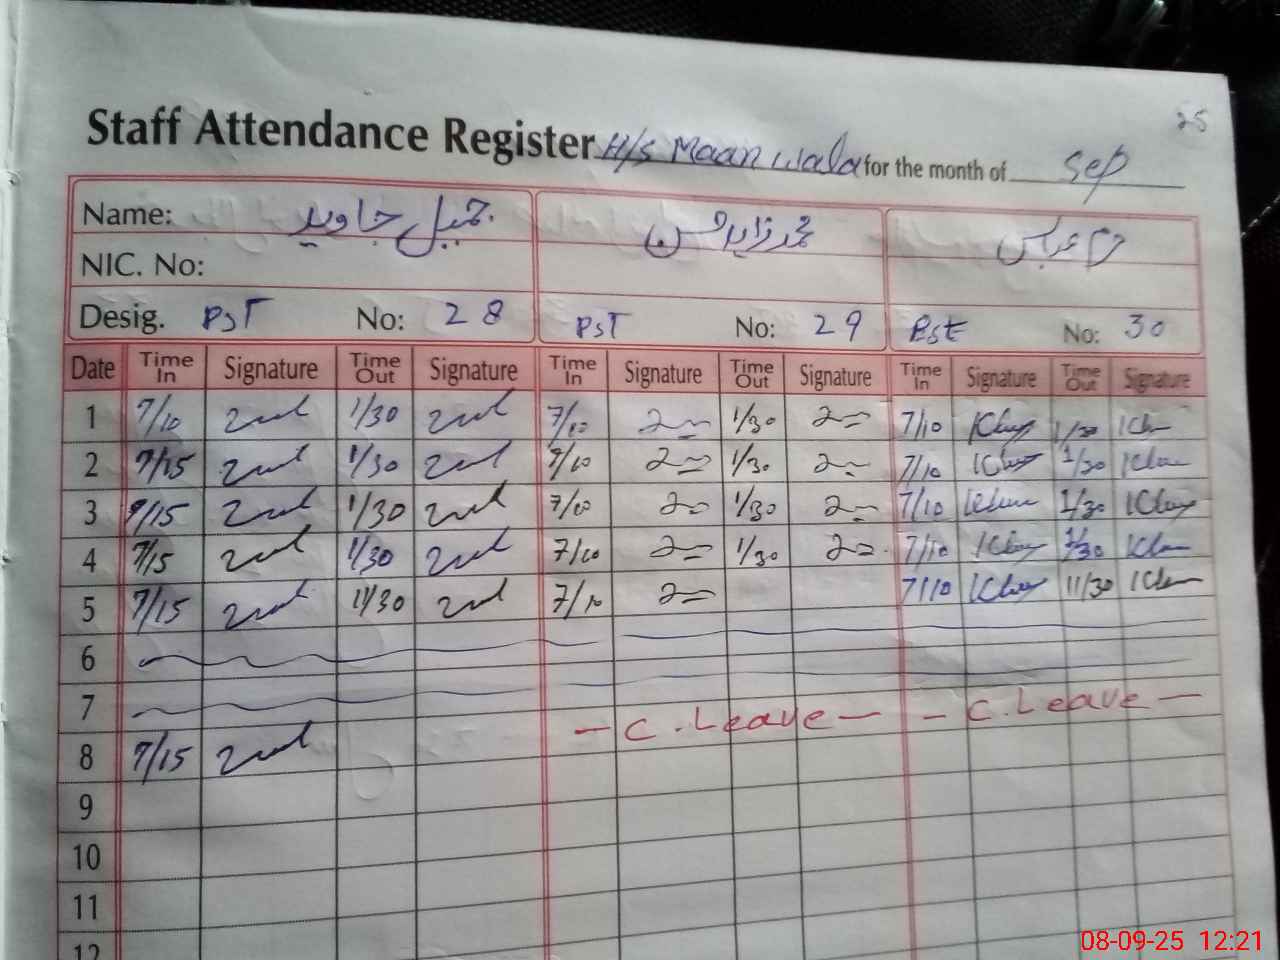 25
Staff Attendance Register H/S Maanwala for the month of Sep
Name: جمیل جاوید محمد زاہد حسن عباس
NIC. No:
Desig. PST No: 28 PST No: 29 Pst No: 30
Date Time In Signature Time Out Signature Time In Signature Time Out Signature Time In Signature Time Out Signature
1 7/10 1/30 7/10 1/30 7/10 1/30
2 7/15 1/30 7/10 1/30 7/10 1/30
3 7/15 1/30 7/10 1/30 7/10 1/30
4 7/15 1/30 7/10 1/30 7/10 1/30
5 7/15 11/30 7/10 7/10 11/30
6
7
8 7/15 - C. Leave - - C. Leave -
9
10
11
12
08-09-25 12:21